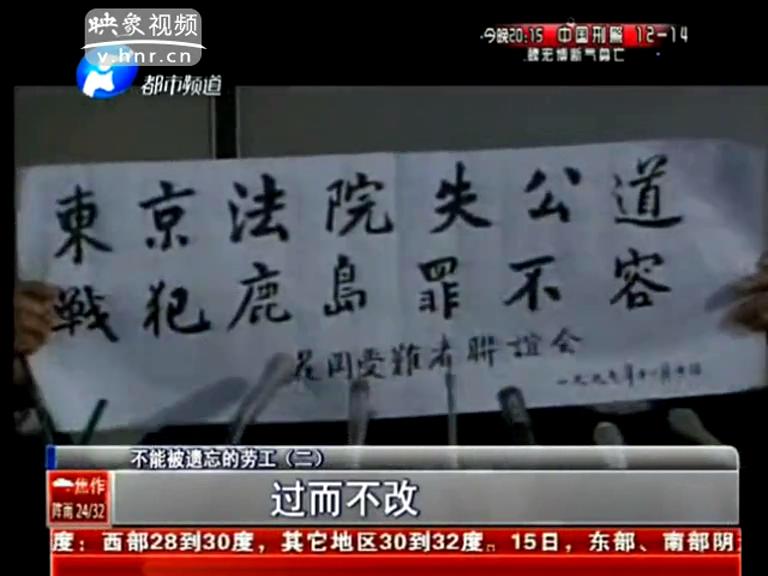 映象视频
v.hnr.cn
都市频道
今晚20:15 中国刑警 12-14
魏宏博断气身亡
東京法院失公道
戦犯鹿島罪不容
花岡受難者聯誼会
不能被遗忘的劳工(二)
过而不改
焦作
阵雨 24/32
度：西部28到30度，其它地区30到32度。15日，东部、南部阴